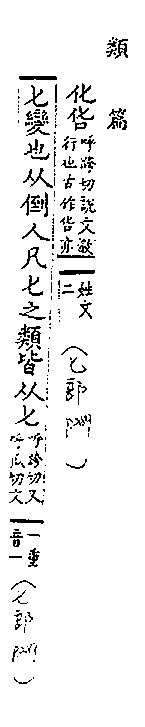 類篇
化𠤎呼跨切說文教
行也古作𠤎亦
姓文
二
(匕部 門)
匕變也从倒人凡匕之類皆从匕呼跨切又
呼瓜切文
一重
音一
(匕部 門)